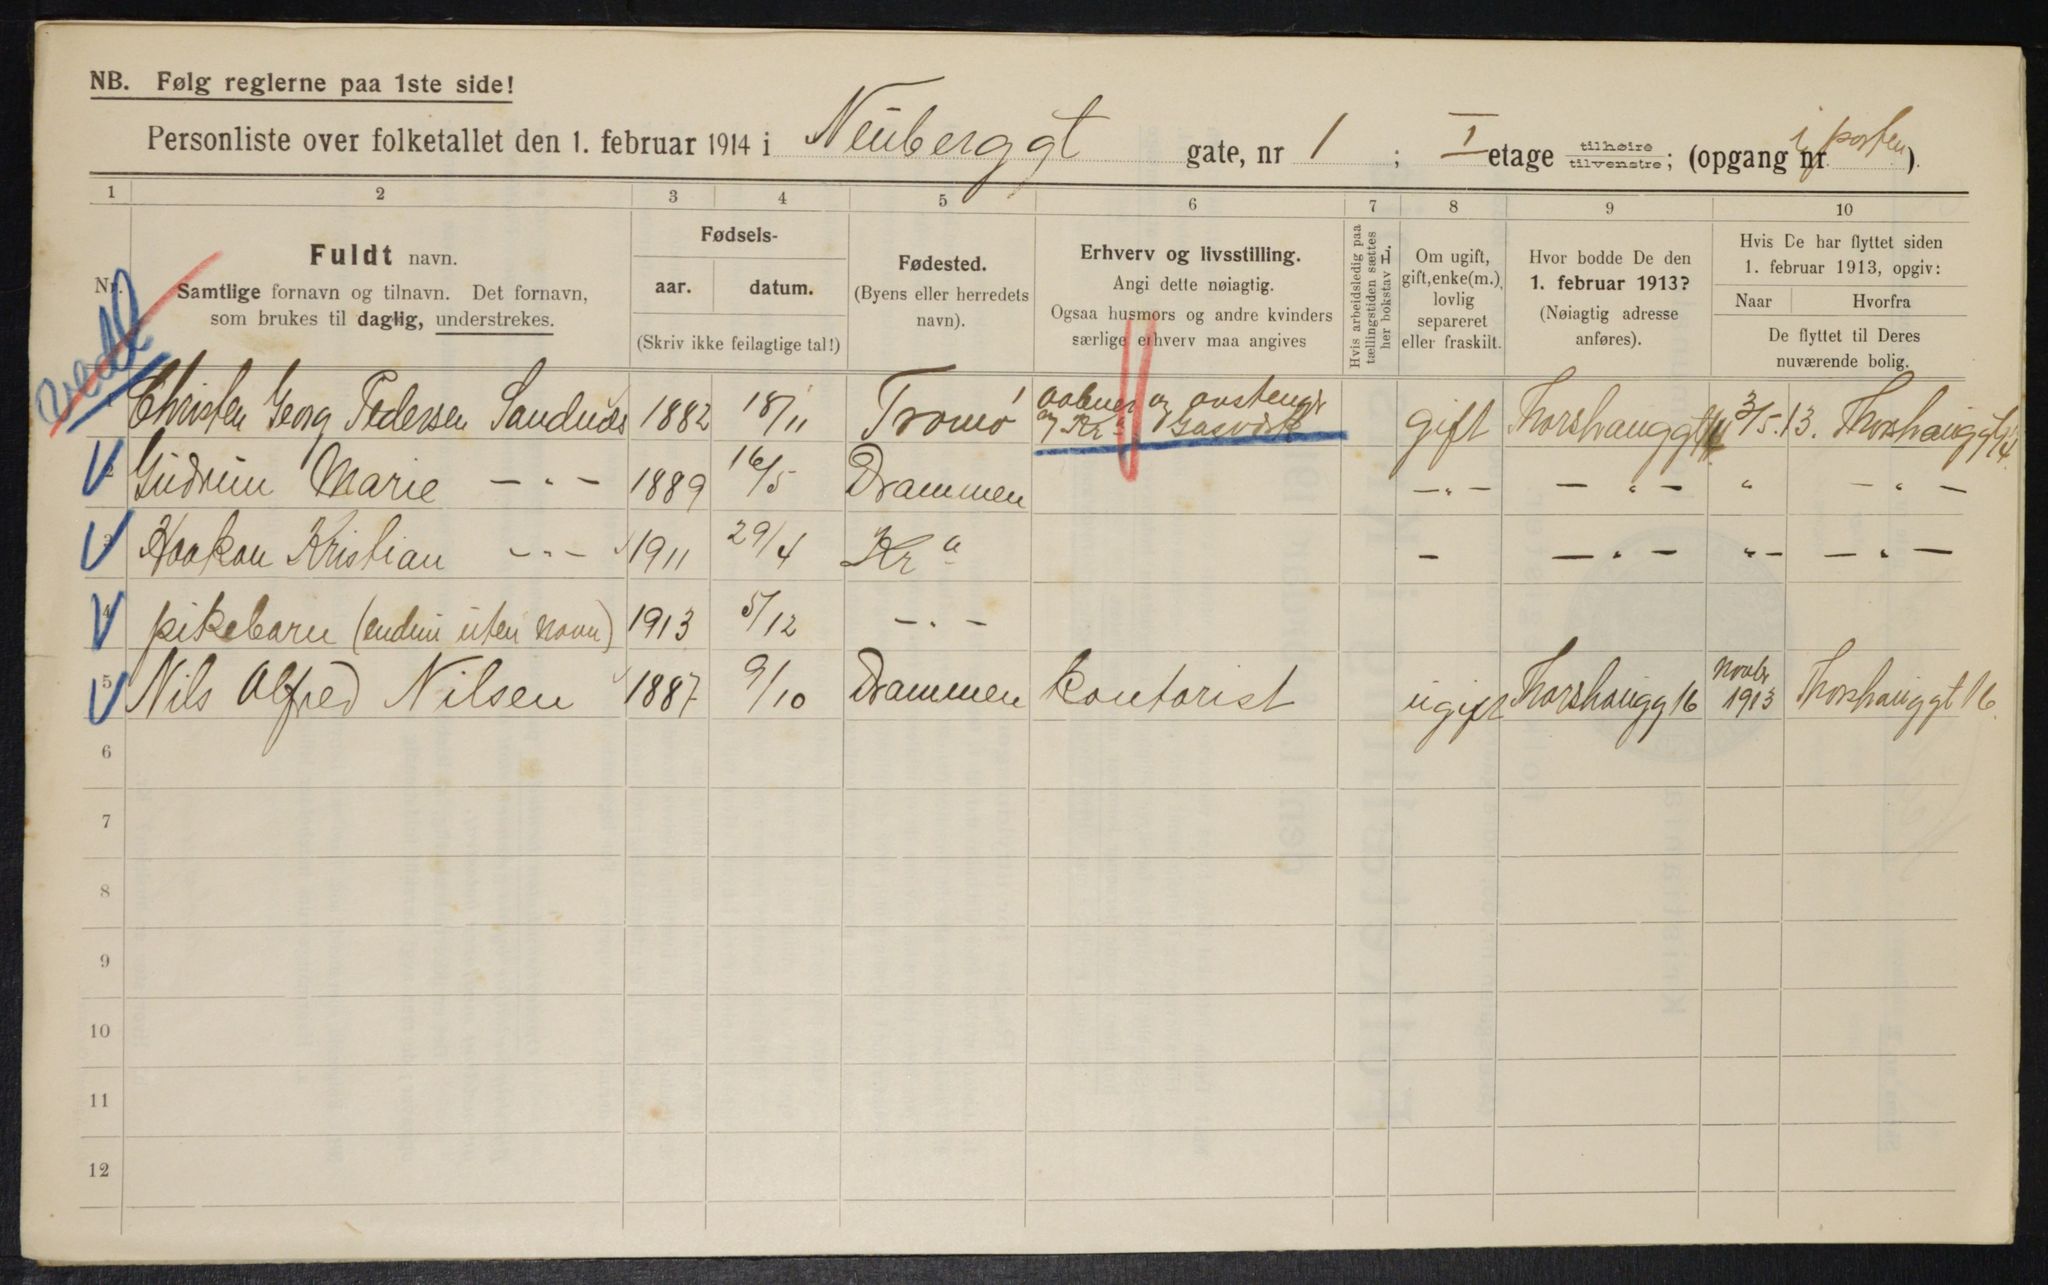 NB. Følg reglerne paa 1ste side!
Personliste over folketallet den 1. februar 1914 i Neuberggt gate, nr 1 ; I etage tilhøire tilvenstre; (opgang nr i porten ).
1 2 3 4 5 6 7 8 9 10
Nr.
Fuldt navn.
Samtlige fornavn og tilnavn. Det fornavn,
som brukes til daglig, understrekes.
Fødsels-
aar. datum.
(Skriv ikke feilagtige tal!)
Fødested.
(Byens eller herredets
navn).
Erhverv og livsstilling.
Angi dette nøiagtig.
Ogsaa husmors og andre kvinders
særlige erhverv maa angives
Hvis arbeidsledig paa
tællingstiden sættes
her bokstav H.
Om ugift,
gift, enke(m.),
lovlig
separeret
eller fraskilt.
Hvor bodde De den
1. februar 1913?
(Nøiagtig adresse
anføres).
Hvis De har flyttet siden
1. februar 1913, opgiv:
Naar Hvorfra
De flyttet til Deres
nuværende bolig.
Christen Georg Pedersen Sandnæs 1882 18/11 Tromø og Kra Gasværk gift Thorshauggt 3/5.13. Thorshauggt 14
Gudrun Marie — " — 1889 16/5 Drammen — " — — " — " — " —
3 Haakon Kristian — " — 1911 29/4 Kra — — " — " — — " —
4 pikebarn (endnu uten navn) 1913 5/12 — " —
5 Nils Alfred Nilsen 1887 9/10 Drammen kontorist ugift Thorshaugg 16 Novbr 1913 Thorshauggt 16.
6
7
8
9
10
11
12